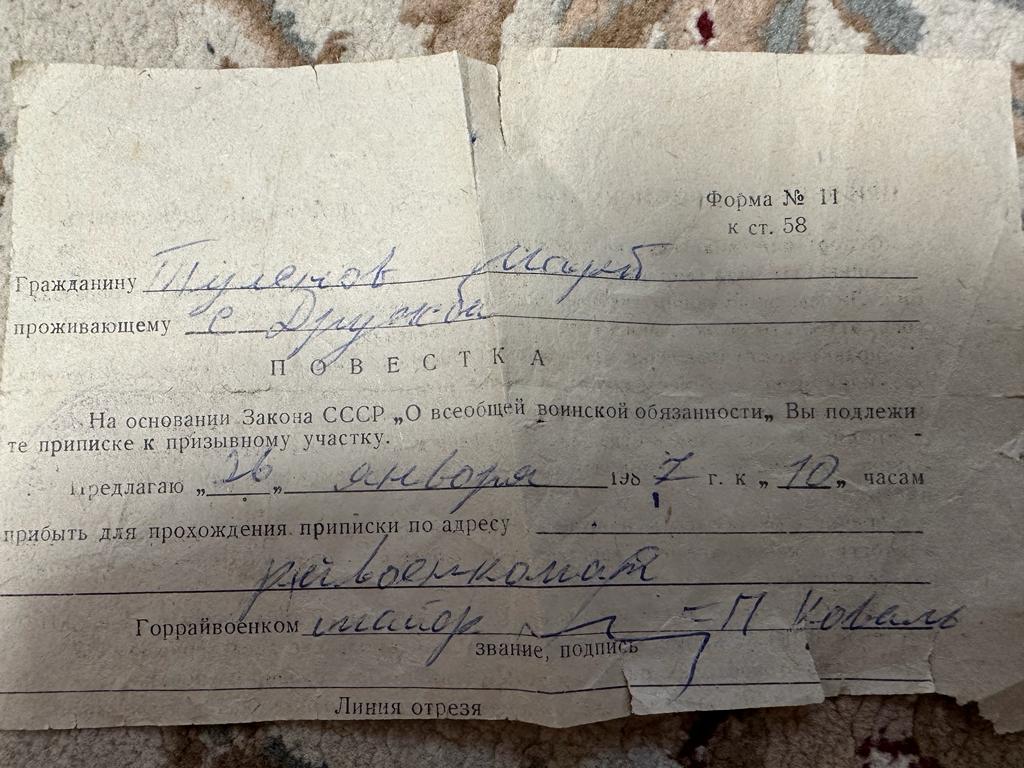 Форма № 11
к ст. 58
Гражданину Туленов
проживающему с Дружба
ПОВЕСТКА
На основании Закона СССР „О всеобщей воинской обязанности„ Вы подлежи
те приписке к призывному участку.
Предлагаю „26„ января 1987 г. к „10„ часам
прибыть для прохождения приписки по адресу
райвоенкомат
Горрайвоенком майор П Коваль
звание, подпись
Линия отреза